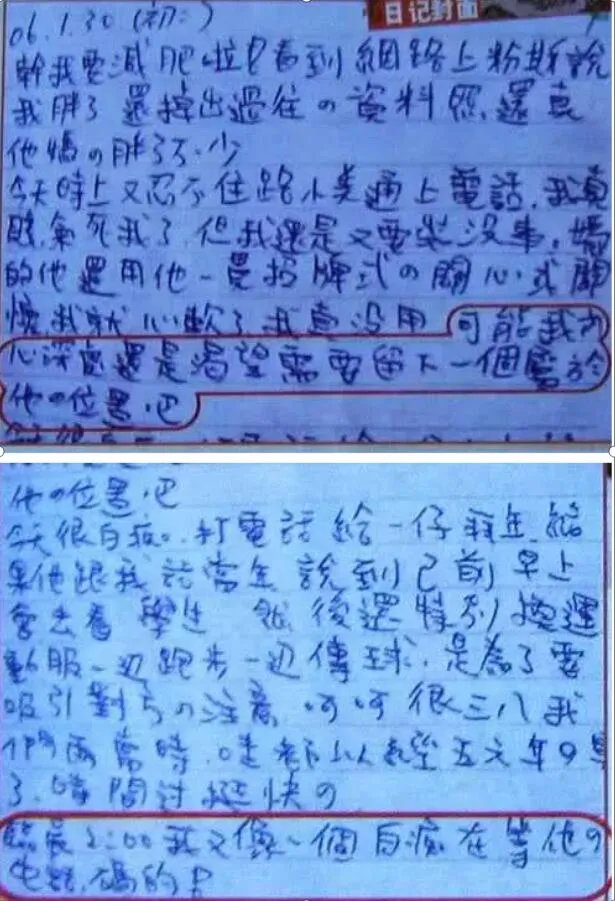 日记封面
06.1.30(初二)
幹我要減肥啦P看到網路上粉斯說
我胖了還撐出過往の資料照,還真
他媽の胖了不少
今天時上又忍不住跟小美通上電話,我真
氣死我了,但我還是又要裝沒事,媽
的他還用他一貫招牌式の關心或關
懷我就心軟了,我真沒用 可能我內
心深處還是渴望需要留下一個屬於
他の位置吧
他の位置吧
今天很白痴,打電話給一仔拜年,結
果他跟我話當年說到已前早上
會去看學生 然後還特別換運
動服一边跑步一边傳球,是為了要
吸引對方の注意,呵呵很三八我
們兩當時,哇都以經五六年の事
了,時間过挺快の
臨晨2:00我又像一個白痴在等他の
电話,媽的P